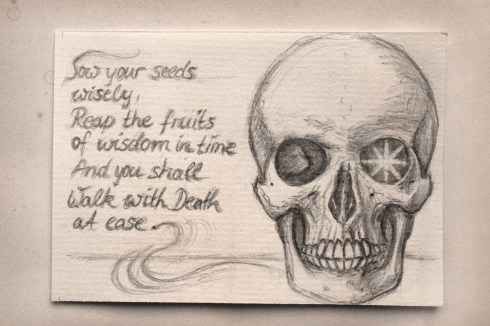 Sow your seeds
wisely,
Reap the fruits
of wisdom in time
And you shall
Walk with Death
at ease.